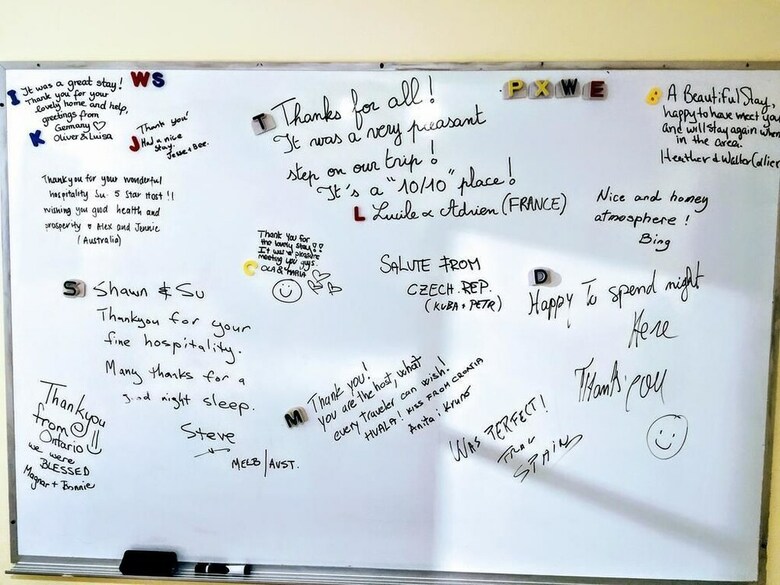 It was a great stay!
Thank you for your
lovely home and help,
greetings from
Germany
Oliver & Luisa
I
K
W S
J
Thank you!
Had a nice
stay.
Thank you for your wonderful
hospitality Su. 5 Star Host!!
wishing you good health and
prosperity Alex and Jennie
(Australia)
T
Thanks for all!
It was a very pleasant
step on our trip!
It's a "10/10" place!
L
Lucile & Adrien (FRANCE)
P X W E
A Beautiful Stay
happy to have meet you
and will stay again when
in the area.
Heather & Walter Collier
Nice and homey
atmosphere!
Bing
Thank You for
the lovely stay??
It was a pleasure
meeting you guys.
C
OLA &
SALUTE FROM
CZECH. REP.
(KUBA + PETR)
D
Happy To spend night
Here
Thank you
S
Shawn & Su
Thankyou for your
fine hospitality.
Many thanks for a
good night sleep.
Steve
MELB/AUST.
M
Thank you!
you are the host, what
every traveler can wish!
HVALA! KISS FROM CROATIA
Anita i Kruno
WAS PERFECT!
FROM
SPAIN
Thankyou
from
Ontario
we were
BLESSED
Magnar + Bonnie